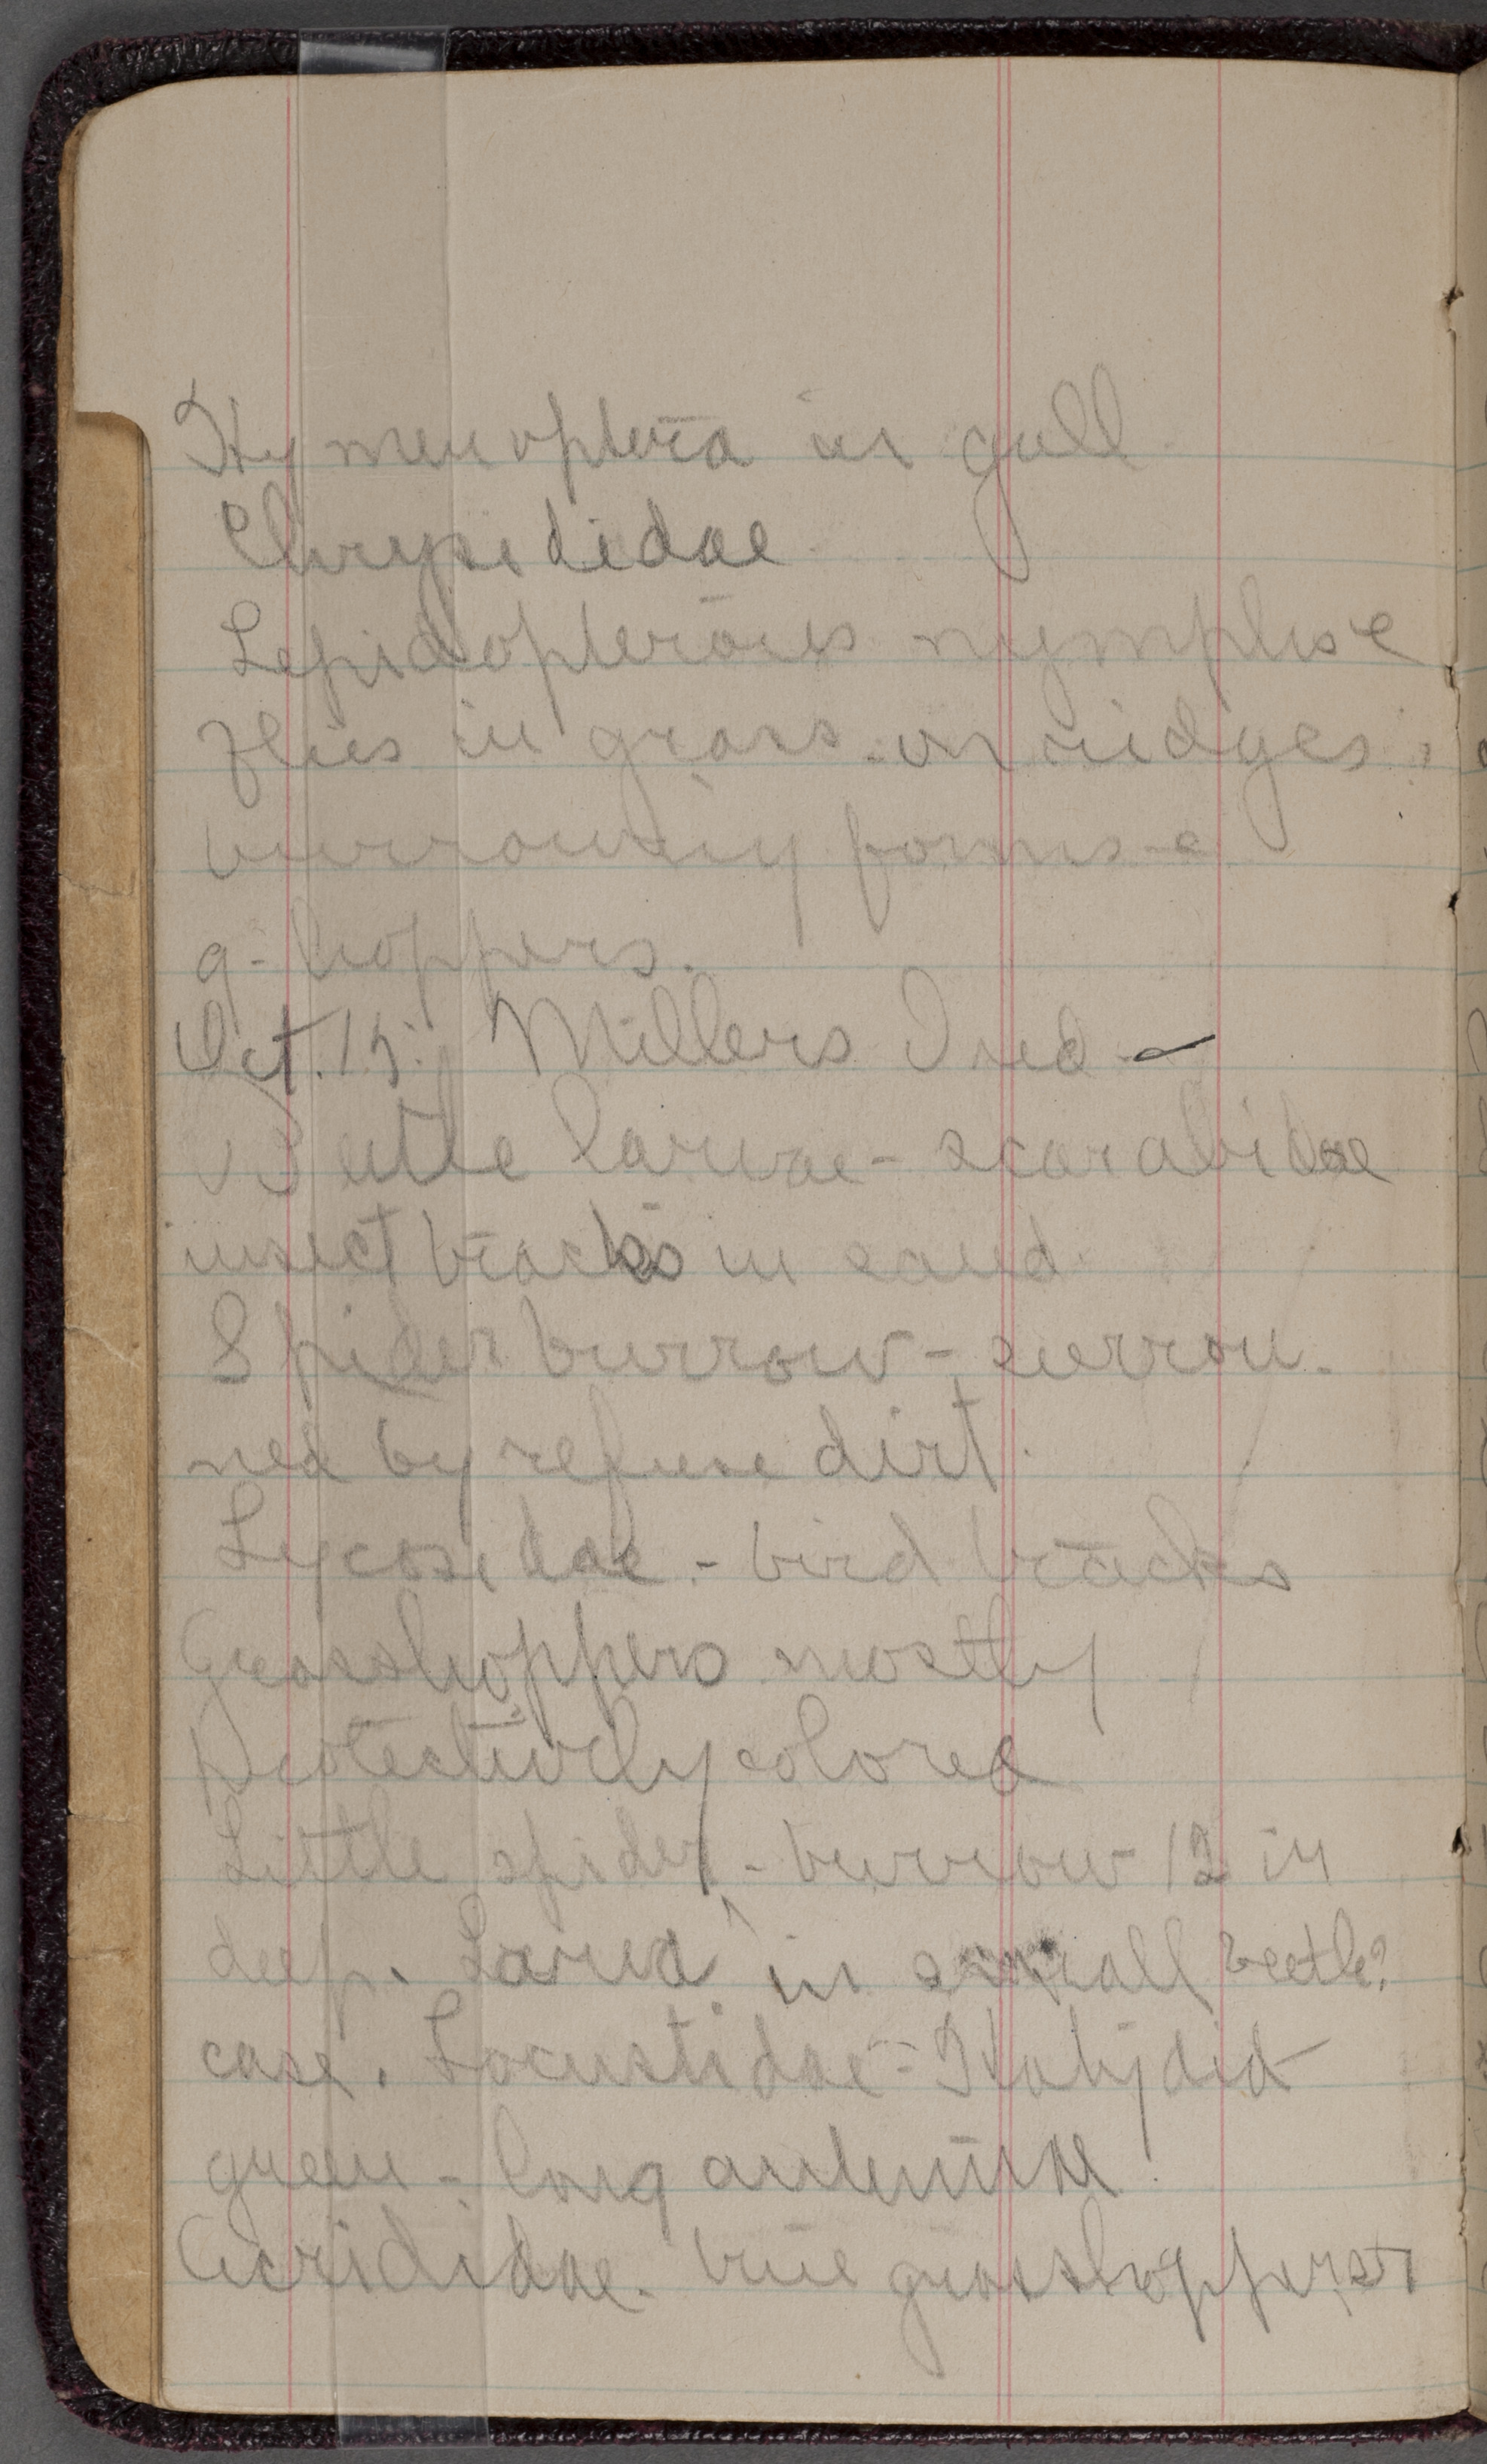 Hymenoptera in gall
Chrysididae
Lepidopterous nymphs &
flies in grass on ridges,
burrowing forms &
g-hoppers.
Oct. 15. Millers Ind -
Beetle larvae - scarabidae
insect tracks in sand.
Spider burrow - surrou-
ned by refuse dirt.
Lycosidae. - bird tracks
Grasshoppers mostly
protectively colored
Little spider - burrow 12 in
deep. Larva in small beetle?
case. Locustidae - Katydid
green - long antennae.
Acrididae. true grasshoppers